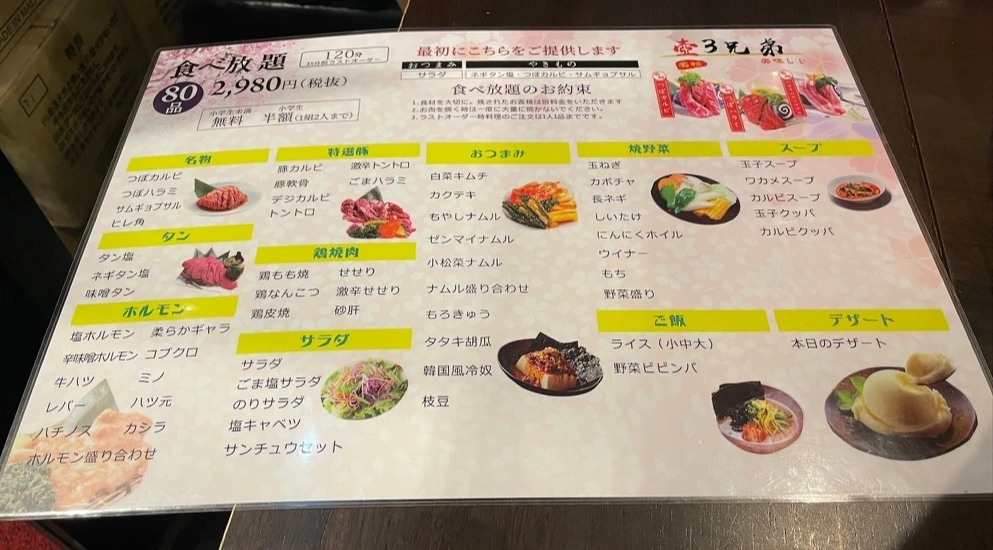 食べ放題
120分
80品
2,980円(税抜)
小学生未満 無料
小学生 半額(1組2人まで)
最初にこちらをご提供します
おつまみ やきもの
サラダ ネギタン塩・つぼカルビ・サムギョプサル
食べ放題のお約束
1.食材を大切に。残されたお客様は別料金をいただきます
2.お肉を焼く時は一度に大量に焼かないでください。
3.ラストオーダー時料理のご注文は1人1品までです。
壺3兄弟
名物
美味しい
つぼカルビ
つぼハラミ
名物
つぼカルビ
つぼハラミ
サムギョプサル
ヒレ角
タン
タン塩
ネギタン塩
味噌タン
ホルモン
塩ホルモン 柔らかギャラ
辛味噌ホルモン コブクロ
牛ハツ ミノ
レバー ハツ元
ハチノス カシラ
ホルモン盛り合わせ
特選豚
豚カルビ 激辛トントロ
豚軟骨 ごまハラミ
デジカルビ
トントロ
鶏焼肉
鶏もも焼 せせり
鶏なんこつ 激辛せせり
鶏皮焼 砂肝
サラダ
サラダ
ごま塩サラダ
のりサラダ
塩キャベツ
サンチュウセット
おつまみ
白菜キムチ
カクテキ
もやしナムル
ゼンマイナムル
小松菜ナムル
ナムル盛り合わせ
もろきゅう
タタキ胡瓜
韓国風冷奴
枝豆
焼野菜
玉ねぎ
カボチャ
長ネギ
しいたけ
にんにくホイル
ウイナー
もち
野菜盛り
ご飯
ライス(小中大)
野菜ビビンバ
スープ
玉子スープ
ワカメスープ
カルビスープ
玉子クッパ
カルビクッパ
デザート
本日のデザート